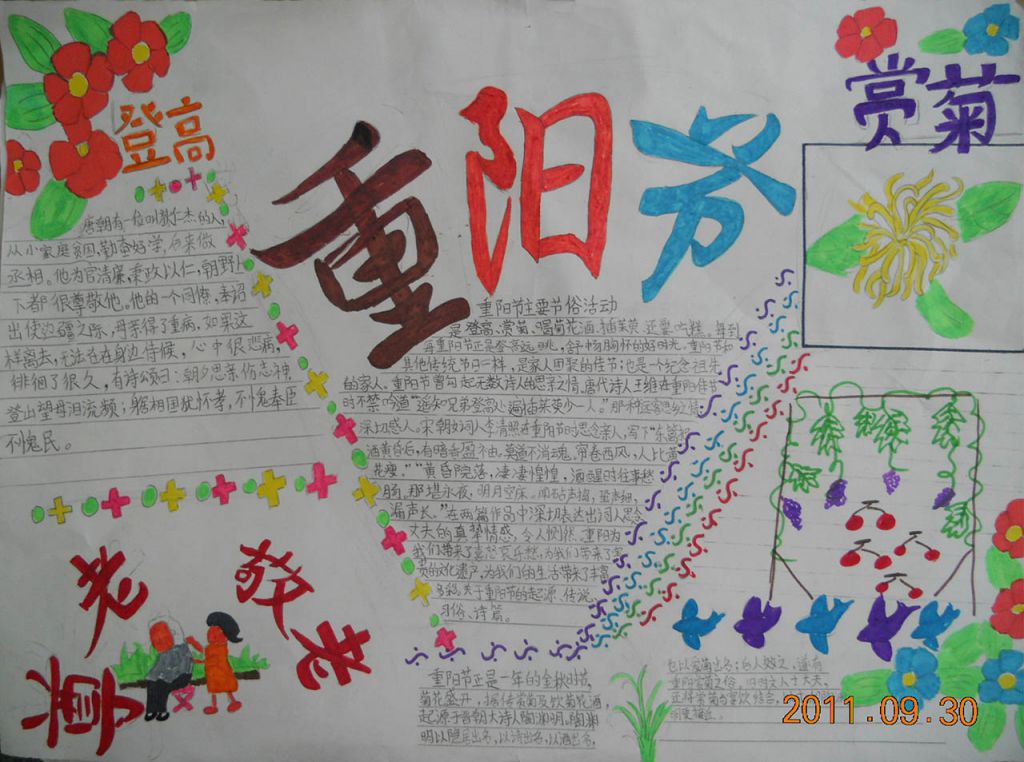 登高
赏菊
重阳节
唐朝有一位叫狄仁杰的人,
从小家庭贫困,勤奋好学,后来做
丞相。他为官清廉,秉政以仁,朝野上
下都很尊敬他。他的一个同僚,奉诏
出使边疆之际,母亲得了重病,如果这
样离去,无法在在身边侍候,心中很悲痛,
徘徊了很久,有诗颂曰:朝夕思亲伤志神,
登山望母泪流频;躬相国犹怀孝,不愧奉臣
不愧民。
重阳节主要节俗活动
是登高、赏菊、喝菊花酒、插茱萸、还要吃糕。每到
重阳节正是登高远眺,舒畅胸怀的好时光。重阳节和
其他传统节日一样,是家人团聚的佳节;也是一个纪念祖先
的家人。重阳节曾勾起无数诗人的思亲之情。唐代诗人王维在重阳佳节
时不禁吟道"遥知兄弟登高处,遍插茱萸少一人。"那种
深切感人。宋朝女词人李清照在重阳节时思念亲人,写下"东篱把
酒黄昏后,有暗香盈袖。莫道不消魂,帘卷西风,人比黄
花瘦。""黄昏院落,凄凄惶惶,酒醒时往事愁
肠。那堪永夜,明月空床。闻砧声捣,蛩声细,
漏声长。"在两篇作品中深切表达出词人思念
丈夫的真挚情感,令人恻然。重阳为
我们带来了喜怒哀乐愁,为我们带来了宝
贵的文化遗产,为我们的生活带来了丰富
关于重阳节的起源、传说、
习俗、诗篇。
尊老
敬老
重阳节正是一年的金秋时节,
菊花盛开,据传赏菊及饮菊花酒,
起源于晋朝大诗人陶渊明。陶渊
明以隐居出名,以诗出名,以酒出名,
也以爱菊出名;后人效之,遂有
重阳赏菊之俗。旧时文人士大夫,
2011.09.30